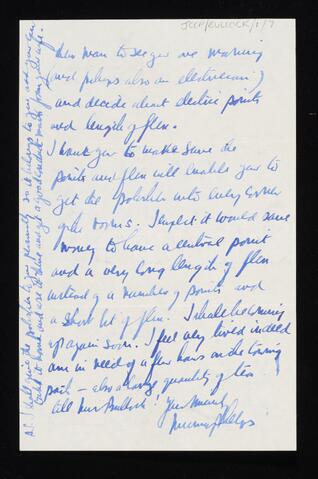 this man to see you one morning
(and perhaps also an electrician?)
and decide about electric points
and length of flex.
I want you to make sure the
points and flex will enable you to
get the polisher into every corner
of the rooms; I might it would save
money to have a central point
and a very long length of flex
instead of a number of points and
a short bit of flex. I shall be coming
up again soon. I feel very tired indeed
am in need of a few hours on the towing
path — also a large quantity of tea.
tell Mrs Bullock! Yours
P.S. I shall give the polisher to you personally so it belongs to you and you can
take it home and use it there and get a good credit mark from your wife.